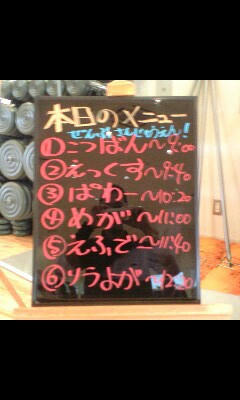 本日のメニュー
ぜんぶさんじゅっぷん!
①こつばん~9:00
②えっくす~9:40
③ぱわー~10:20
④めが~11:00
⑤えふで~11:40
⑥リラよが~12:20